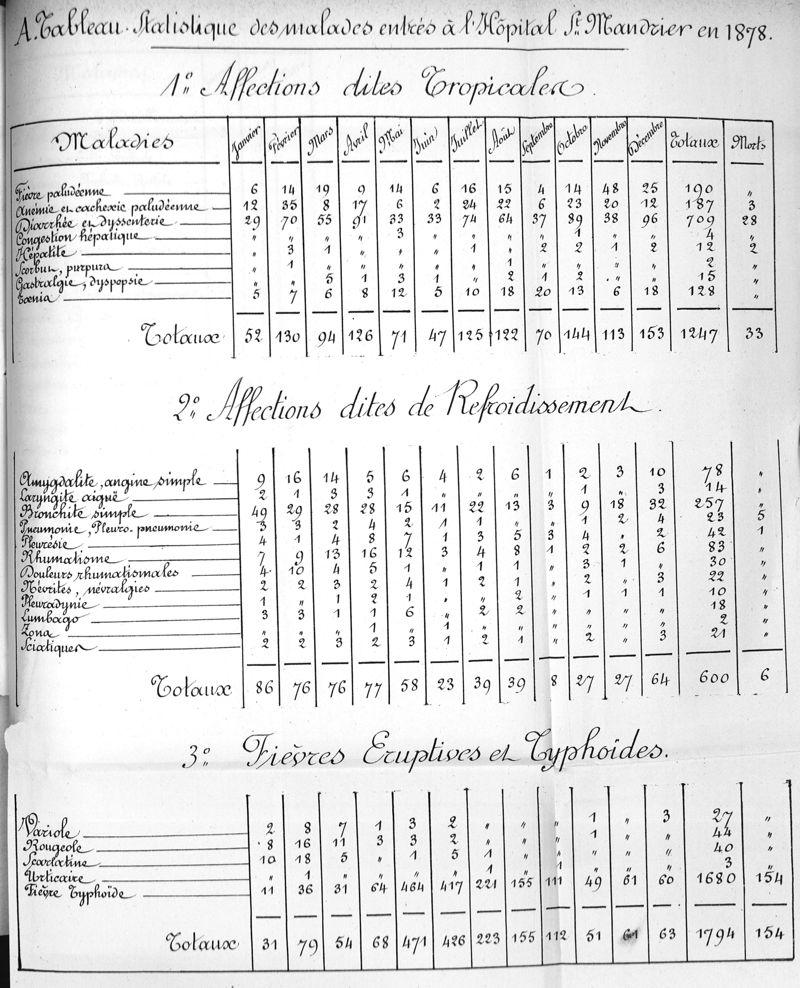 A. Tableau Statistique des malades entrés à l'Hôpital St. Mandrier en 1878.
1º Affections dites Tropicales.
Maladies Janvier Février Mars Avril Mai Juin Juillet Août Septembre Octobre Novembre Décembre Totaux Morts
Fièvre paludéenne 6 14 19 9 14 6 16 15 4 14 48 25 190 "
Anémie et cachexie paludéenne 12 35 8 17 6 2 24 22 6 23 20 12 187 3
Diarrhée et dyssenterie 29 70 55 91 33 33 74 64 37 89 38 96 709 28
Congestion hépatique " " " " 3 " " " " 1 " " 4 "
Hépatite " 3 1 " " " 1 " 2 2 1 2 12 2
Scorbut, purpura " 1 " " " " " 1 " " " " 2 "
Gastralgie, dyspopsie " " 5 1 3 1 " 2 1 2 " " 15 "
Tœnia 5 7 6 8 12 5 10 18 20 13 6 18 128 "
Totaux 52 130 94 126 71 47 125 122 70 144 113 153 1247 33
2º Affections dites de Refroidissement.
Amygdalite, angine simple 9 16 14 5 6 4 2 6 1 2 3 10 78 "
Laryngite aiguë 2 1 3 3 1 " " " " 1 " 3 14 "
Bronchite simple 49 29 28 28 15 11 22 13 3 9 18 32 257 "
Pneumonie, Pleuro-pneumonie 3 3 2 4 2 1 1 " " 1 2 4 23 5
Pleurésie 4 1 4 8 7 1 3 5 3 4 " 2 42 1
Rhumatisme 7 9 13 16 12 3 4 8 1 2 2 6 83 "
Douleurs rhumatismales 4 10 4 5 1 " 1 1 " 3 1 " 30 "
Névrites, névralgies 2 2 3 2 4 1 2 1 " 2 " 3 22 "
Pleurodynie 1 " 1 2 1 " " 2 " 1 1 1 10 "
Lumbago 3 3 1 1 6 " 2 2 " " " " 18 "
Zona " " " 1 " 1 " " " " " " 2 "
Sciatique 2 2 3 2 3 1 2 1 " 2 " 3 21 "
Totaux 86 76 76 77 58 23 39 39 8 27 27 64 600 6
3º Fièvres Eruptives et Typhoïdes.
Variole 2 8 7 1 3 2 " " " 1 " 3 27 "
Rougeole 8 16 11 3 3 2 " " " 1 " " 44 "
Scarlatine 10 18 5 " 1 5 1 " " " " " 40 "
Urticaire " 1 " " " " 1 " 1 " " " 3 "
Fièvre Typhoïde 11 36 31 64 464 417 221 155 111 49 61 60 1680 154
Totaux 31 79 54 68 471 426 223 155 112 51 61 63 1794 154